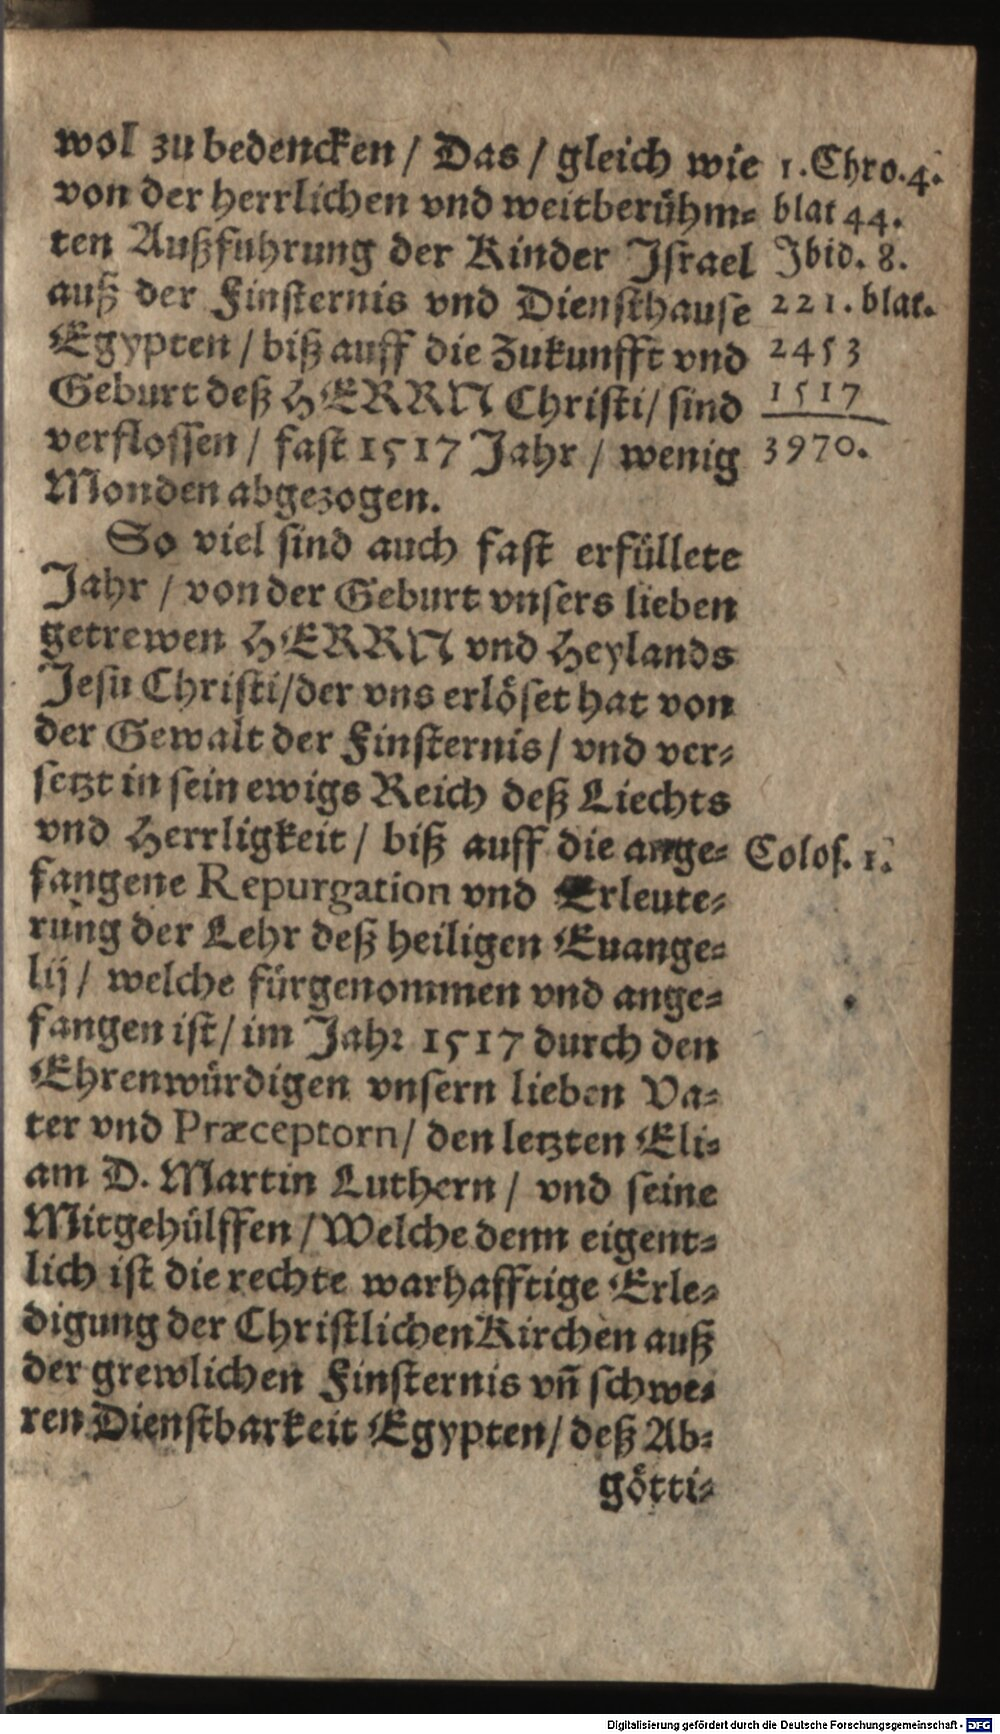 wol zu bedencken / Das / gleich wie
von der herrlichen vnd weitberühm⸗
ten Außfuhrung der Kinder Jsrael
auß der Finsternis vnd Diensthause
Egypten / biß auff die Zukunfft vnd
Geburt deß HERRN Christi / sind
verflossen / fast 1517 Jahr / wenig
Monden abgezogen.
So viel sind auch fast erfüllete
Jahr / von der Geburt vnsers lieben
getrewen HERRN vnd Heylands
Jesu Christi / der vns erlöset hat von
der Gewalt der Finsternis / vnd ver⸗
setzt in sein ewigs Reich deß Liechts
vnd Herrligkeit / biß auff die ange⸗
fangene Repurgation vnd Erleute⸗
rung der Lehr deß heiligen Euange⸗
lij / welche fürgenommen vnd ange⸗
fangen ist / im Jahr 1517 durch den
Ehrenwürdigen vnsern lieben Va⸗
ter vnd Præceptorn / den letzten Eli⸗
am D. Martin Luthern / vnd seine
Mitgehülffen / Welche denn eigent⸗
lich ist die rechte warhafftige Erle⸗
digung der Christlichen Kirchen auß
der grewlichen Finsternis vñ schwe⸗
ren Dienstbarkeit Egypten / deß Ab⸗
götti⸗
1. Chro. 4.
blat 44.
Jbid. 8.
221. blat.
2453
1517
3970.
Colos. 1.
Digitalisierung gefördert durch die Deutsche Forschungsgemeinschaft - DFG